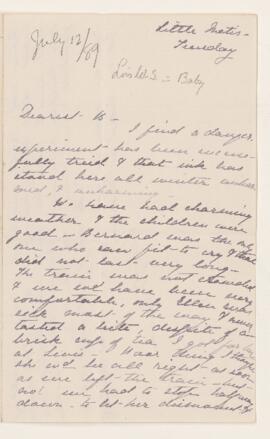 July 12/89
Little Metis -
Tuesday
Lois &S = Baby
Dearest B -
I find a danger
experiment has been success
fully tried & that ink has
stood here all winter unhar
med, & unharming -
We have had charming
weather & the children were
good - Bernard was the only
one who saw fit to cry & that
did not last very long -
The train was not crowded
& we wd have been very
comfortable, only Ellen was
sick most of the way & never
tasted a bite, despite of a
brisk cup of tea I got for her
at Levis - Poor thing I thought
she wd be all right as soon
as we left the train - but
no! we had to stop half way
down - to let her dismount &